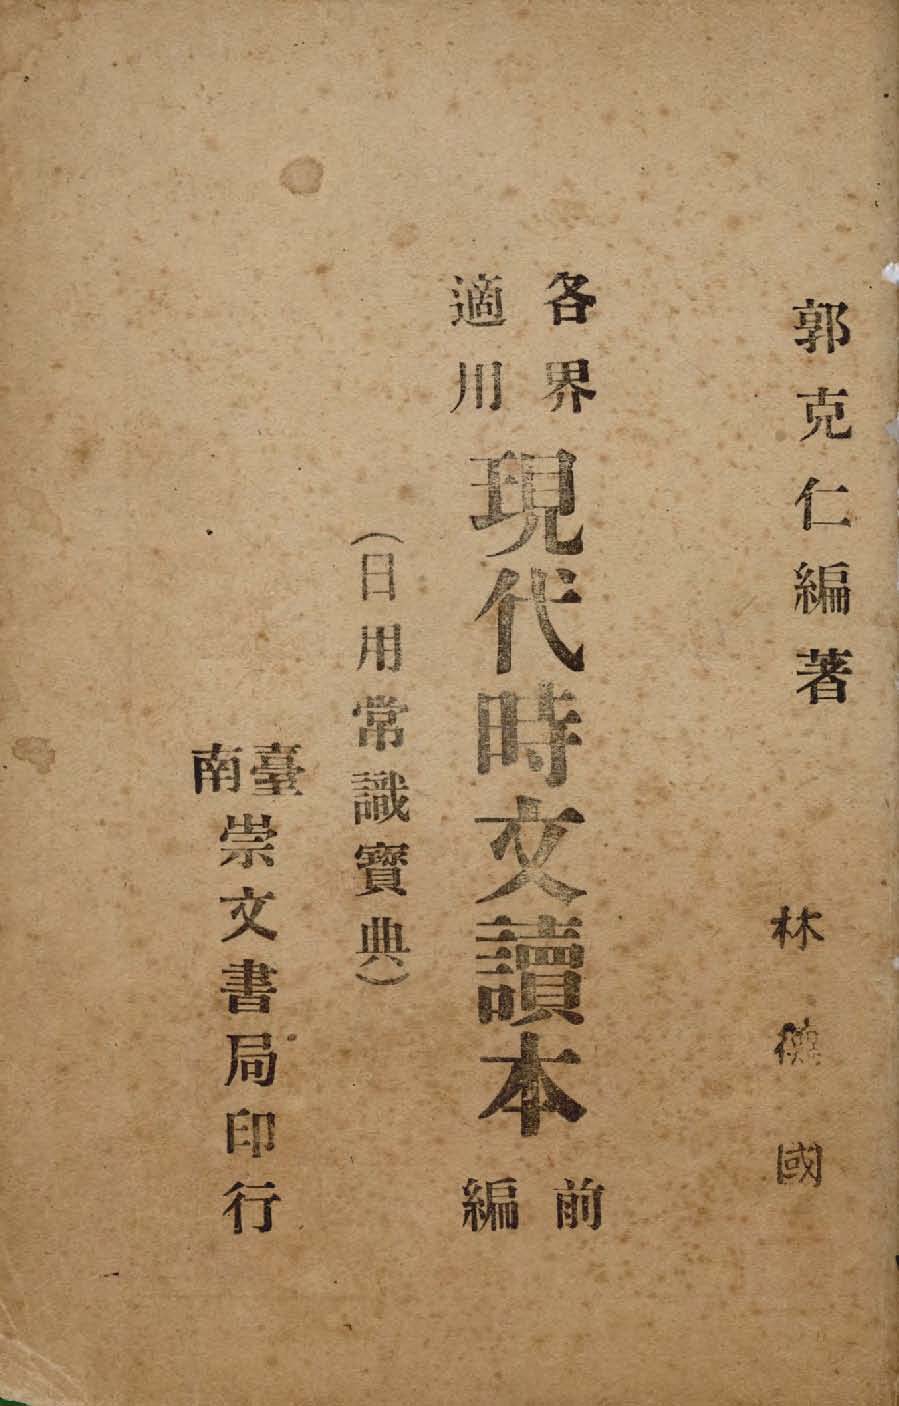 郭克仁編著
林 國
各界
適用
現代時文讀本
前
編
(日用常識寶典)
臺南
崇文書局印行